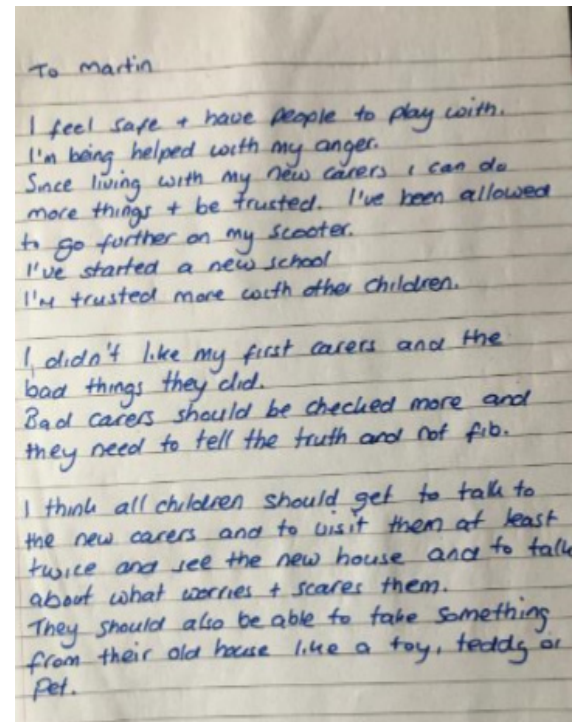 To martin
I feel safe + have people to play with.
I'm being helped with my anger.
Since living with my new carers i can do
more things + be trusted. I've been allowed
to go further on my scooter.
I've started a new school
I'm trusted more with other children.
I didn't like my first carers and the
bad things they did.
Bad carers should be checked more and
they need to tell the truth and not fib.
I think all children should get to talk to
the new carers and to visit them at least
twice and see the new house and to talk
about what worries + scares them.
They should also be able to take something
from their old house like a toy, teddy or
pet.